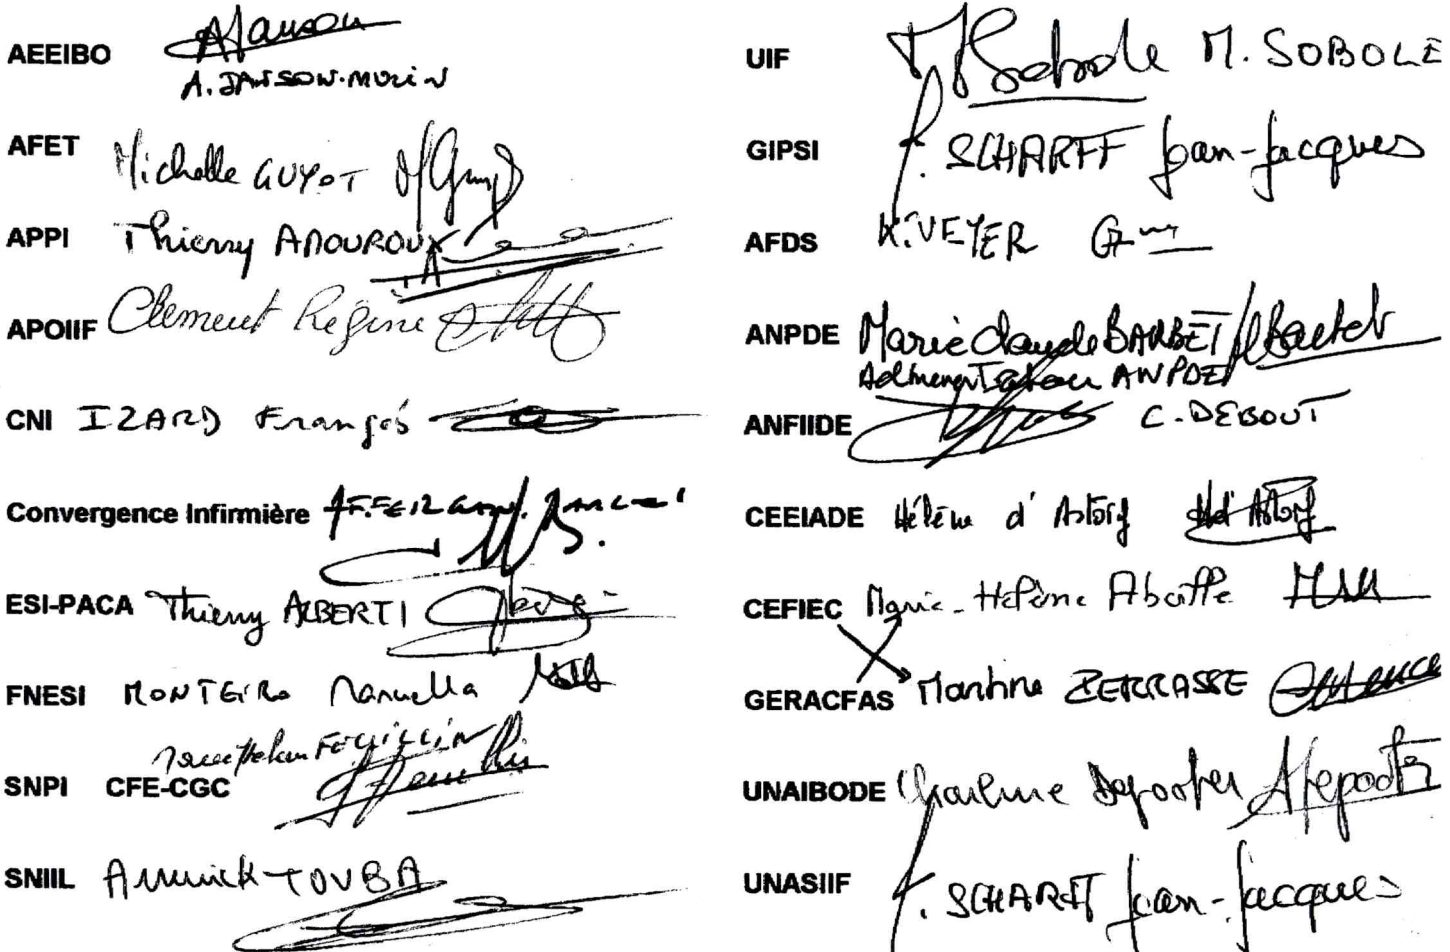 AEEIBO A. JANSON-MULIN
AFET Michelle GUYOT
APPI Thierry AMOUROUX
APOIIF Clement Régine
CNI IZARD François
Convergence Infirmière
ESI-PACA Thierry ALBERTI
FNESI MONTEIRO Manuella
FEUILLIN
SNPI CFE-CGC
SNIIL Annick TOUBA
UIF M. SOBOLE
GIPSI P. SCHARFF Jean-Jacques
AFDS K. VEYER
ANPDE Marie Claude BARBET
ANPDE
ANFIIDE C. DEBOUT
CEEIADE Hélène d'Astorg
CEFIEC Marie-Hélène Abeille
GERACFAS Martine ZERRASSE
UNAIBODE Charline Depooter
UNASIIF P. SCHARFF Jean-Jacques